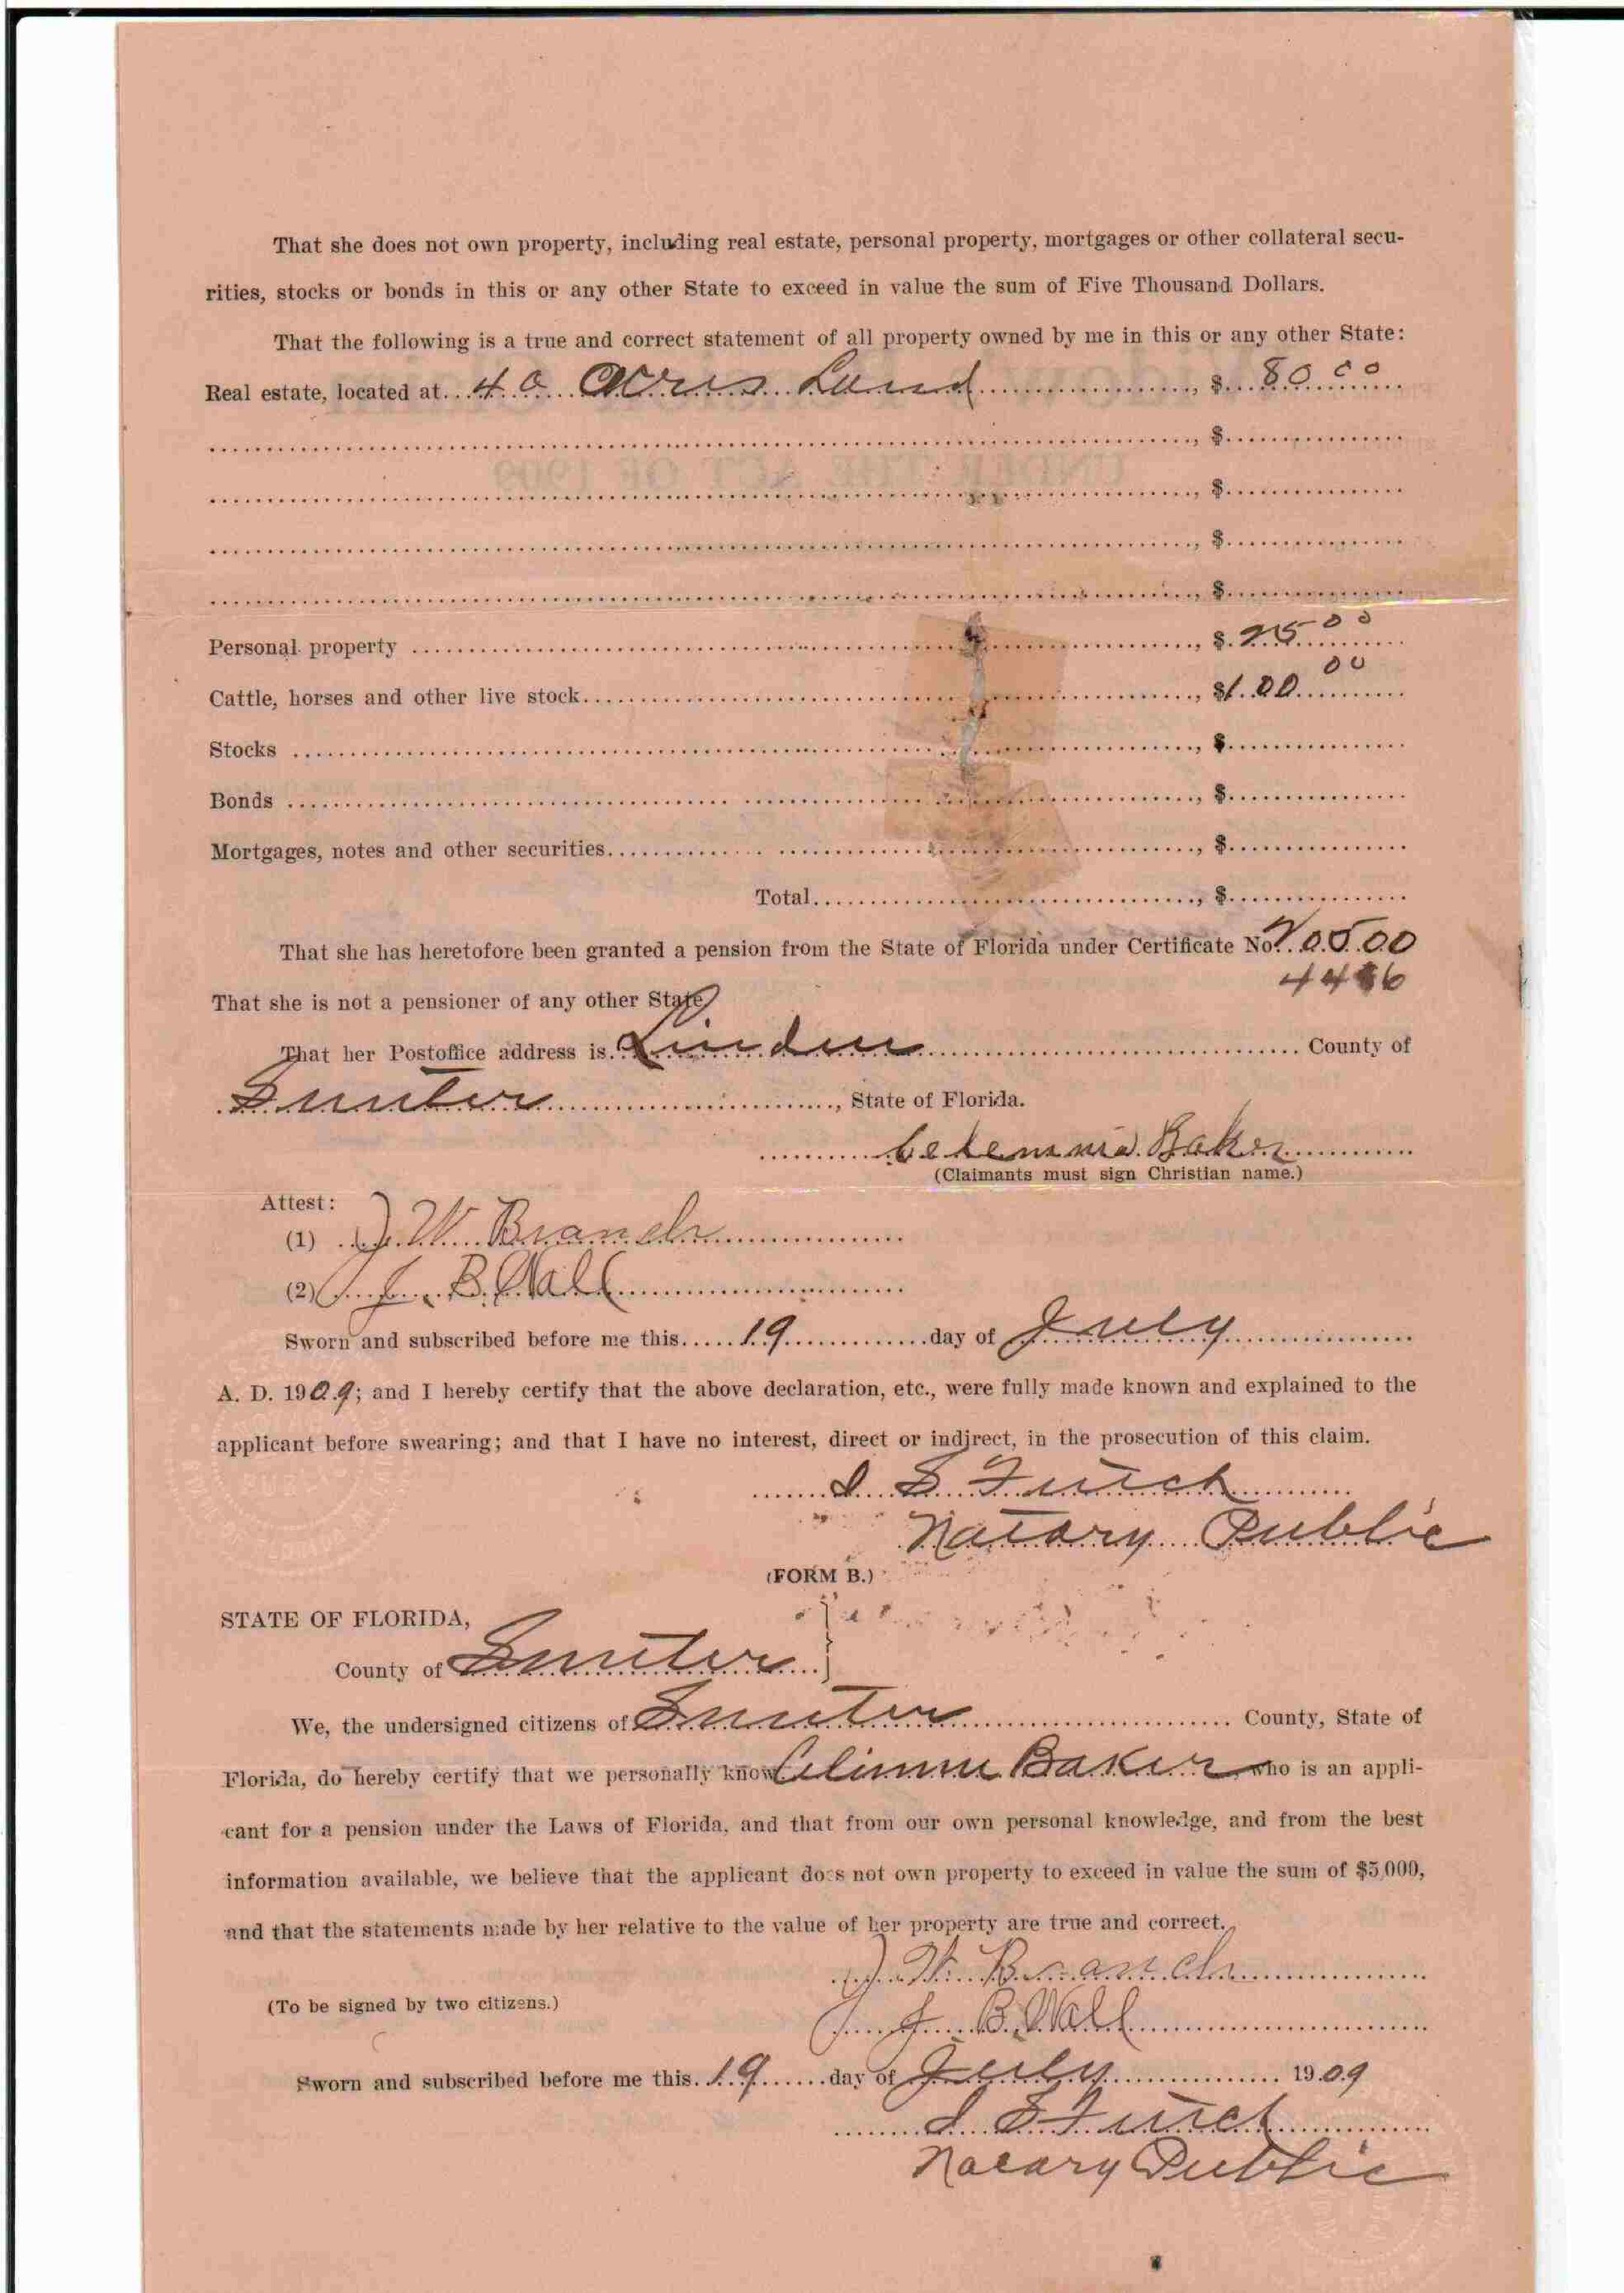 That she does not own property, including real estate, personal property, mortgages or other collateral secu-
rities, stocks or bonds in this or any other State to exceed in value the sum of Five Thousand Dollars.
That the following is a true and correct statement of all property owned by me in this or any other State:
Real estate, located at 40 Acres Land, $ 80.00
UNDER THE ACT OF 1909
, $
, $
, $
, $
Personal property, $ 25 00
Cattle, horses and other live stock, $ 100 00
Stocks, $
Bonds, $
Mortgages, notes and other securities, $
Total, $
That she has heretofore been granted a pension from the State of Florida under Certificate No.
That she is not a pensioner of any other State.
That her Postoffice address is Linden County of
Sumter, State of Florida.
Baker
(Claimants must sign Christian name.)
Attest:
(1) J. W. Branch
(2) J. B. Wall
Sworn and subscribed before me this 19 day of July
A. D. 1909; and I hereby certify that the above declaration, etc., were fully made known and explained to the
applicant before swearing; and that I have no interest, direct or indirect, in the prosecution of this claim.
Notary Public
(FORM B.)
STATE OF FLORIDA,
County of Sumter
We, the undersigned citizens of Sumter County, State of
Florida, do hereby certify that we personally know Baker, who is an appli-
cant for a pension under the Laws of Florida, and that from our own personal knowledge, and from the best
information available, we believe that the applicant does not own property to exceed in value the sum of $5,000,
and that the statements made by her relative to the value of her property are true and correct.
J. W. Branch
(To be signed by two citizens.)
J. B. Wall
Sworn and subscribed before me this 19 day of July 1909
Notary Public